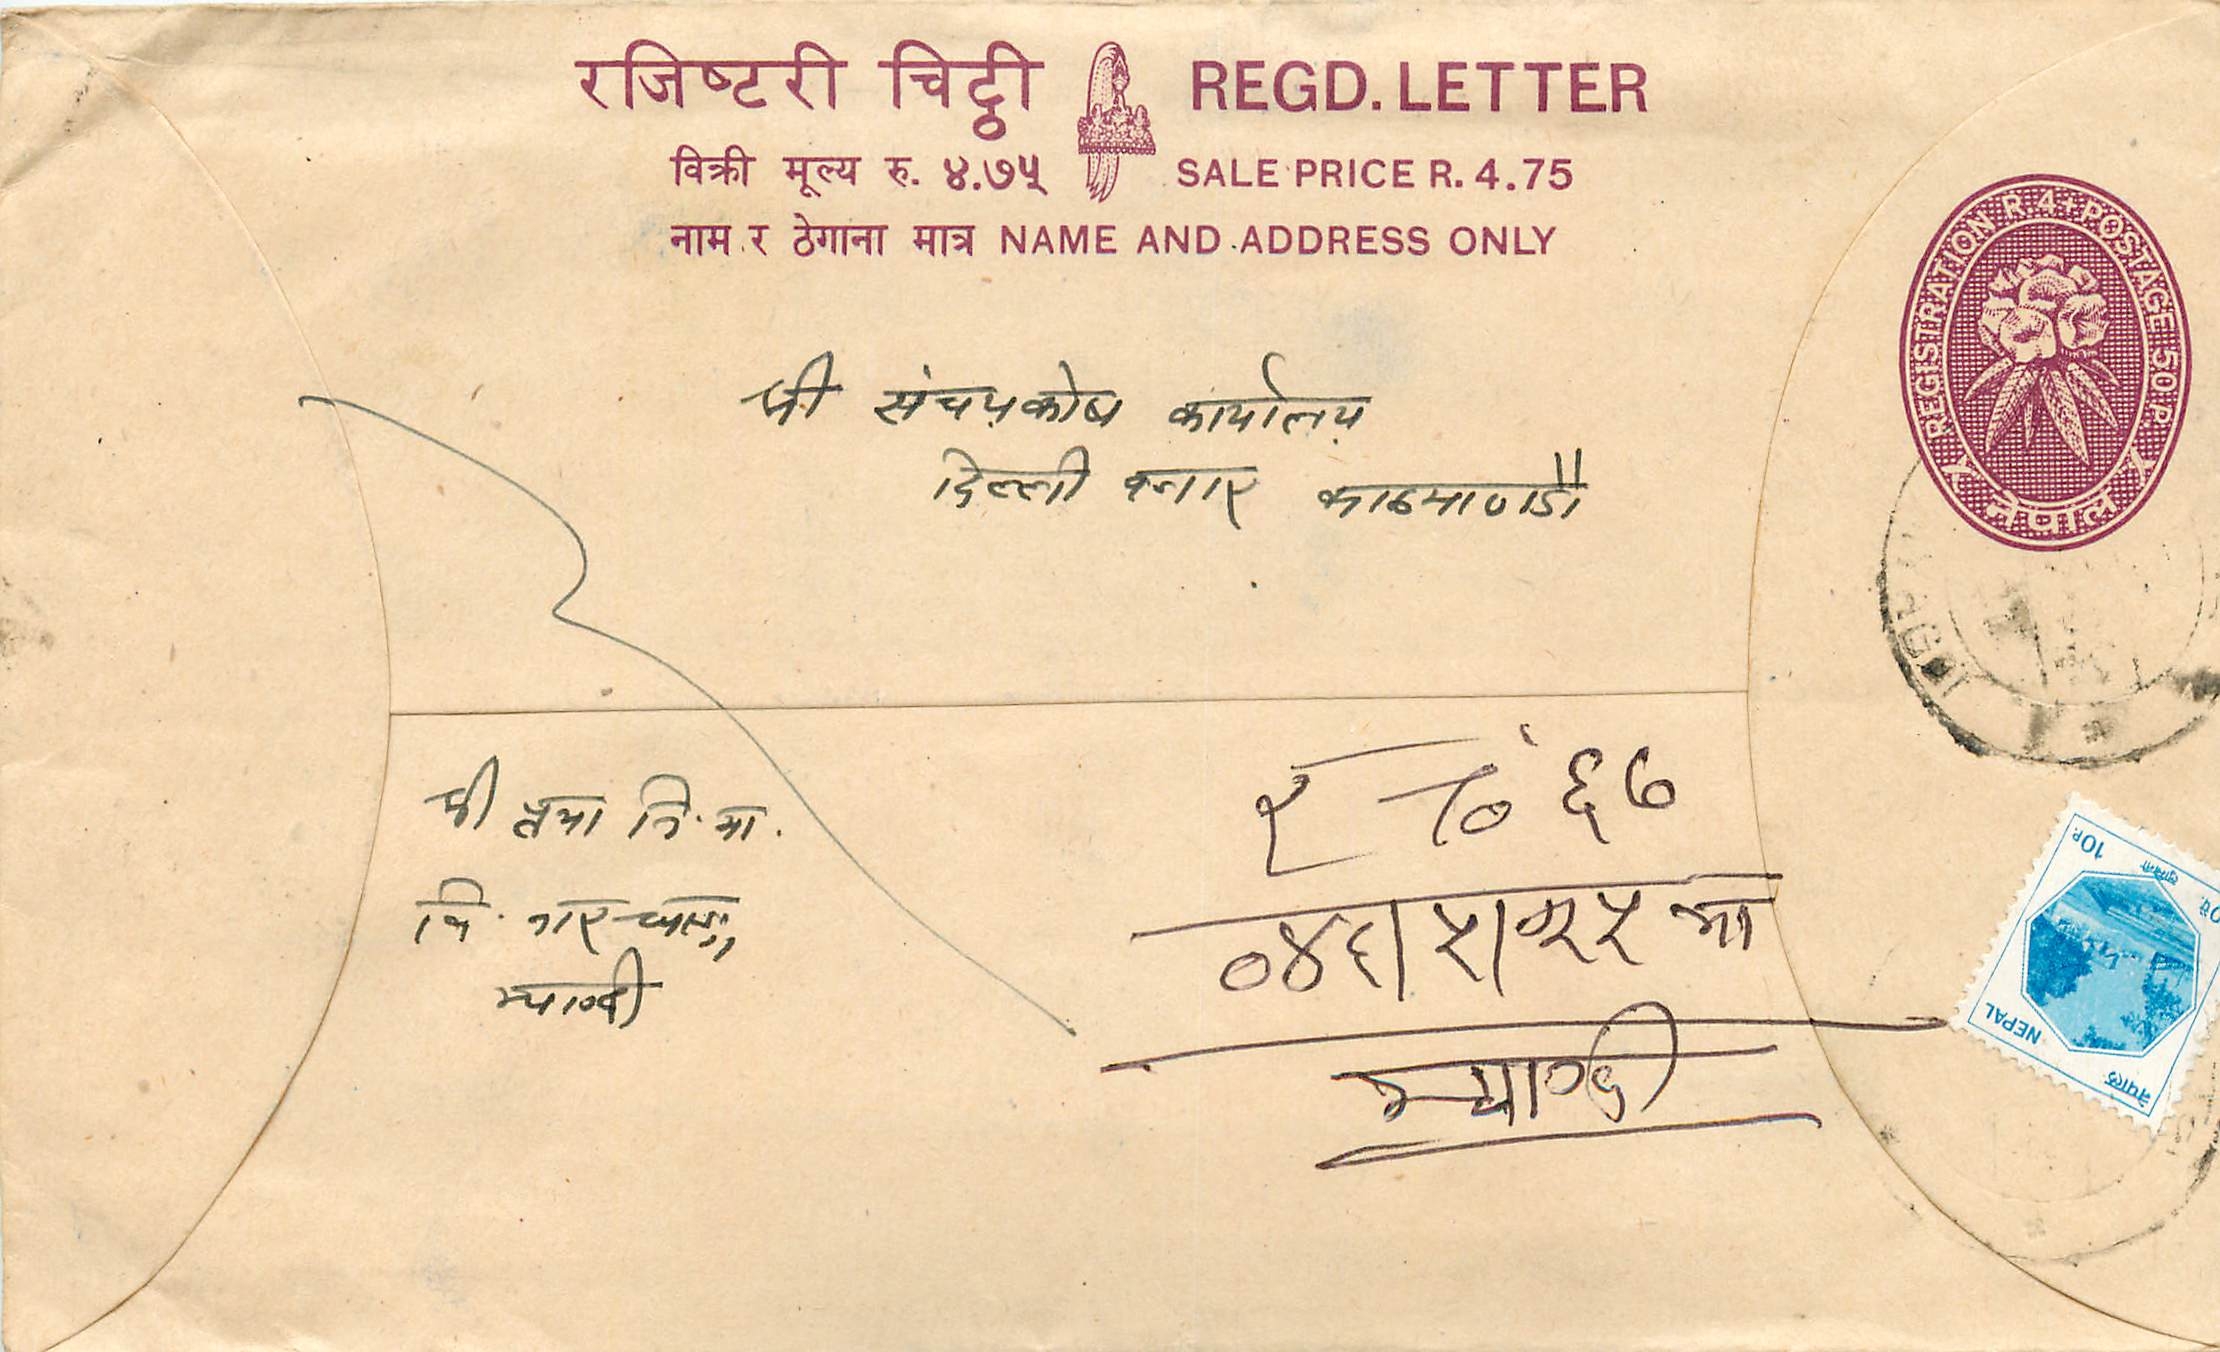 रजिष्टरी चिट्ठी REGD. LETTER
विक्री मूल्य रु. ४.७५ SALE PRICE R. 4.75
नाम र ठेगाना मात्र NAME AND ADDRESS ONLY
REGISTRATION R. 4 + POSTAGE 50 P.
नेपाल
श्री संचयकोष कार्यालय
दिल्ली बजार काठमाण्डौ
श्री
म्याग्दी
र नं ६७
०४६।५।२५ मा
म्याग्दी
10P.
NEPAL
नेपाल